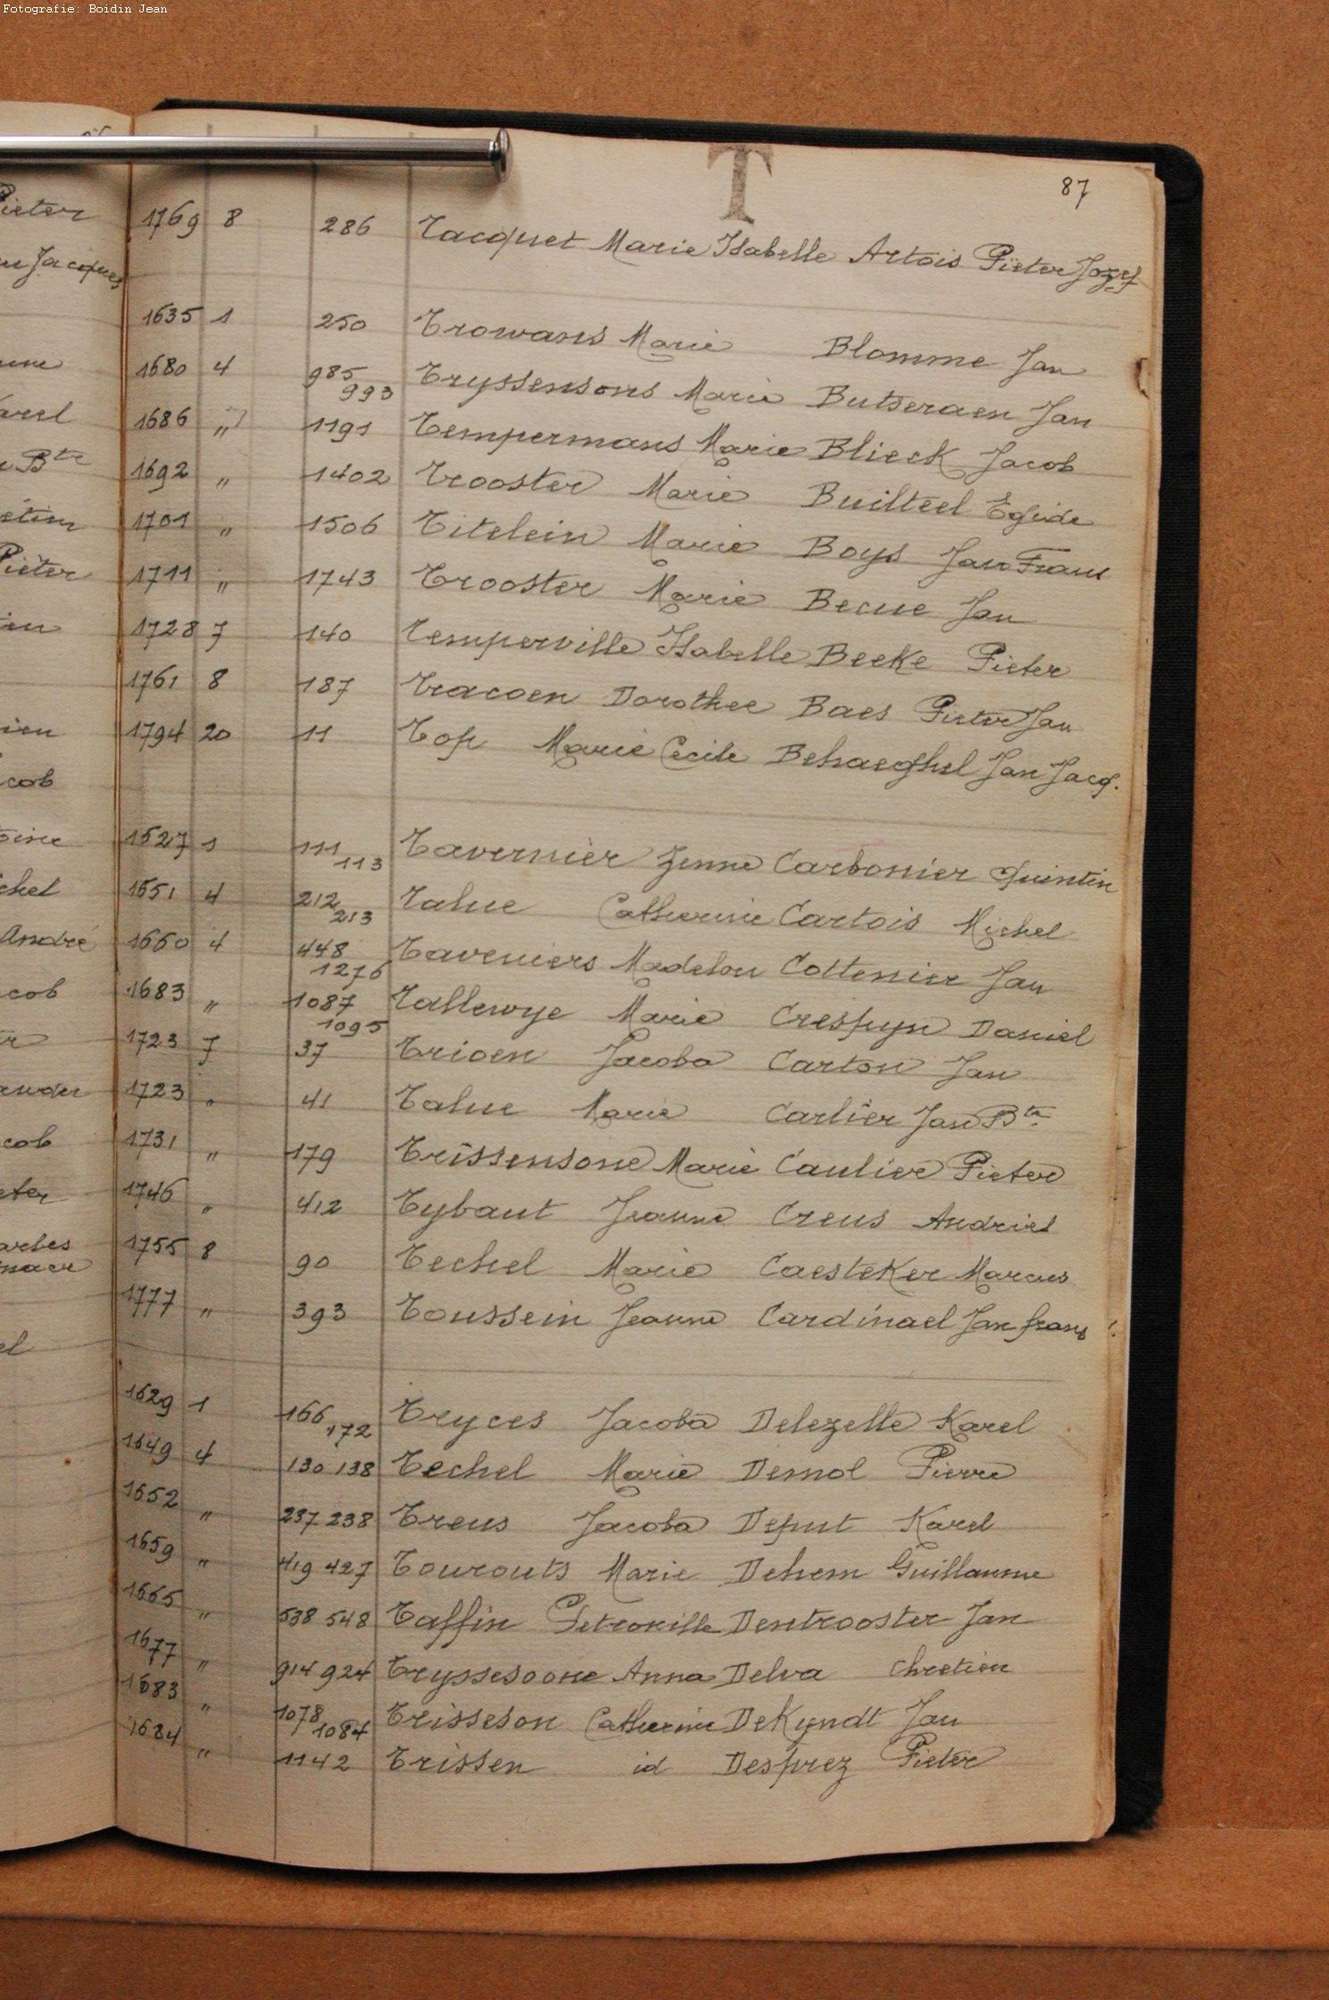 Fotografie: Boidin Jean
T
87
1769 8 286 Tacquet Marie Isabelle Artois Pieter Jozef
1635 1 250 Trowans Marie Blomme Jan
1680 4 985 993 Tryssensons Marie Butseraen Jan
1686 " 1191 Tempermans Marie Blieck Jacob
1692 " 1402 Trooster Marie Builteel Egide
1701 " 1506 Titelein Marie Boys Jan Frans
1711 " 1743 Trooster Marie Becue Jan
1728 7 140 Temperville Isabelle Beeke Pieter
1761 8 187 Tracoen Dorothee Baes Pieter Jan
1794 20 11 Top Marie Cecile Behaeghel Jan Jacq.
1627 1 111 113 Tavernier Jenne Carbonier Quintin
1651 4 212 213 Tahue Catherine Cartois Michel
1660 4 448 Taveniers Madelon Cottenier Jan
1683 " 1276 1087 1095 Tallewye Marie Crespyn Daniel
1723 7 37 Trioen Jacoba Carton Jan
1723 " 41 Tahue Marie Carlier Jan Bte
1731 " 179 Trissensone Marie Caulier Pieter
1746 " 412 Tybaut Jeanne Creus Andries
1755 8 90 Techel Marie Caesteker Marcus
1777 " 393 Toussein Jeanne Cardinael Jan frans
1629 1 166 172 Tryces Jacoba Delezelle Karel
1649 4 130 138 Techel Marie Demol Pierre
1652 " 237 238 Treus Jacoba Deput Karel
1659 " 419 427 Tourouts Marie Dehem Guillaume
1665 " 538 548 Taffin Petronille Dentrooster Jan
1677 " 914 924 Tryssesoone Anna Delva Chretien
1683 " 1078 1084 Trisseson Catherine DeKyndt Jan
1684 " 1142 Trissen id Desprez Pieter